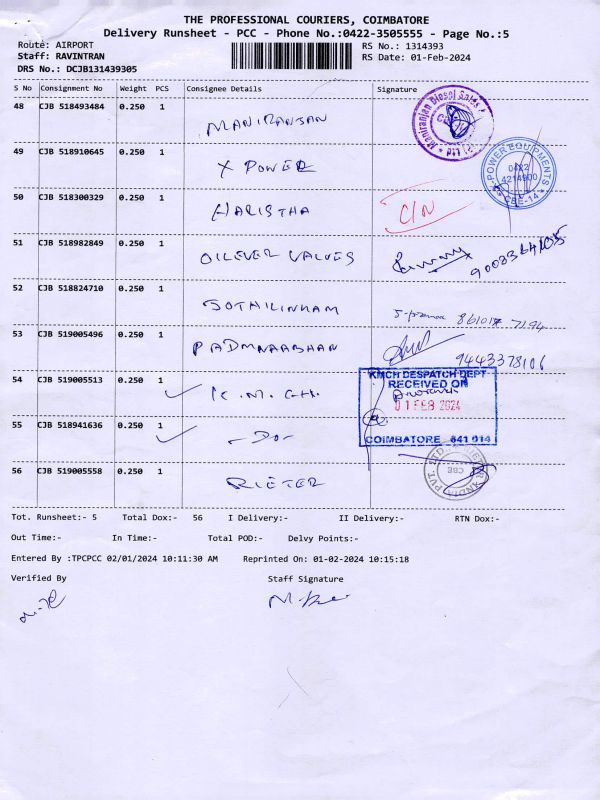 THE PROFESSIONAL COURIERS, COIMBATORE
Delivery Runsheet - PCC - Phone No.:0422-3505555 - Page No.:5
Route: AIRPORT RS No.: 1314393
Staff: RAVINTRAN RS Date: 01-Feb-2024
DRS No.: DCJB131439305
S No Consignment No Weight PCS Consignee Details Signature
48 CJB 518493484 0.250 1 MANIRANJAN
49 CJB 518910645 0.250 1 X POWER
X-POWER EQUIPMENTS
0422
4214900
CBE-14
50 CJB 518300329 0.250 1 HARISTHA C/N
51 CJB 518982849 0.250 1 OILEVER VALVES
52 CJB 518824710 0.250 1 JOTHILINHAM
53 CJB 519005496 0.250 1 PADMNAABHAN 9443378106
54 CJB 519005513 0.250 1 K.M.C.H.
KMCH DESPATCH DEPT
RECEIVED ON
01 FEB 2024
COIMBATORE 641 014
55 CJB 518941636 0.250 1 -Do-
56 CJB 519005558 0.250 1 RIETER
CBE
Tot. Runsheet:- 5 Total Dox:- 56 I Delivery:- II Delivery:- RTN Dox:-
Out Time:- In Time:- Total POD:- Delvy Points:-
Entered By :TPCPCC 02/01/2024 10:11:30 AM Reprinted On: 01-02-2024 10:15:18
Verified By Staff Signature